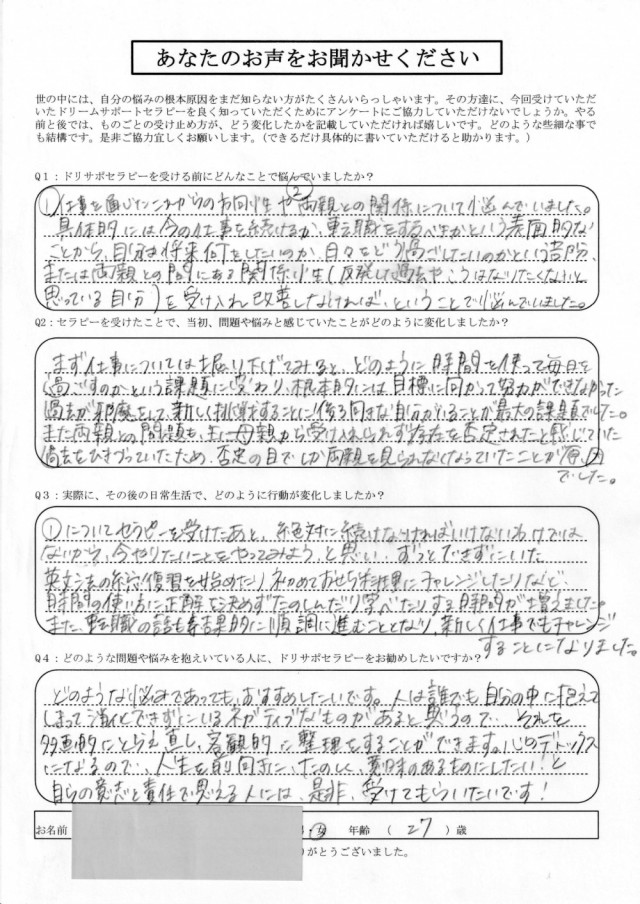 あなたのお声をお聞かせください
世の中には、自分の悩みの根本原因をまだ知らない方がたくさんいらっしゃいます。その方達に、今回受けていただ
いたドリームサポートセラピーを良く知っていただくためにアンケートにご協力していただけないでしょうか。やる
前と後では、ものごとの受け止め方が、どう変化したかを記載していただければ嬉しいです。どのような些細な事で
も結構です。是非ご協力宜しくお願いします。（できるだけ具体的に書いていただけると助かります。）
Q1：ドリサポセラピーを受ける前にどんなことで悩んでいましたか？
①仕事を通じたこれからの方向性や②両親との関係について悩んでいました。
具体的には今の仕事を続けるか、転職をするべきかという表面的な
ことから、自分は将来何をしたいのか、日々をどう過ごしたいのかという部分、
または両親との間にある関係性(反発した過去や、こうはなりたくないと
思っている自分)を受け入れ改善しなければ、ということで悩んでいました。
Q2：セラピーを受けたことで、当初、問題や悩みと感じていたことがどのように変化しましたか？
まず仕事については掘り下げてみると、どのように時間を使って毎日を
過ごすのかという課題に変わり、根本的には目標に向かって努力ができなかった
過去が邪魔をして、新しく挑戦することに後ろ向きな自分がいることが最大の課題でした。
また両親との問題も、主に母親から受け入れられず存在を否定されたと感じていた
過去をひきづっていたため、否定の目でしか両親を見られなくなっていたことが原因
でした。
Q3：実際に、その後の日常生活で、どのように行動が変化しましたか？
①についてセラピーを受けたあと、絶対に続けなければいけないわけでは
ないから、今やりたいことをやってみよう、と思い、ずっとできずにいた
英文法の総復習を始めたり、初めておせち料理にチャレンジしたりなど、
時間の使い方に正解を決めずたのしんだり学べたりする時間が増えました。
また、転職の話も結果的に順調に進むこととなり、新しく仕事でもチャレンジ
することになりました。
Q4：どのような問題や悩みを抱えいている人に、ドリサポセラピーをお勧めしたいですか？
どのような悩みであっても、おすすめしたいです。人は誰でも自分の中に抱えて
しまって消化できずにいるネガティブなものがあると思うので、それを
多面的にとらえ直し、客観的に整理をすることができます。心のデトックス
になるので、人生を前向きに、たのしく、意味のあるものにしたい！と
自らの意志と責任で思える人には、是非、受けてもらいたいです！
お名前 女 年齢 （ 27 ） 歳
がとうございました。